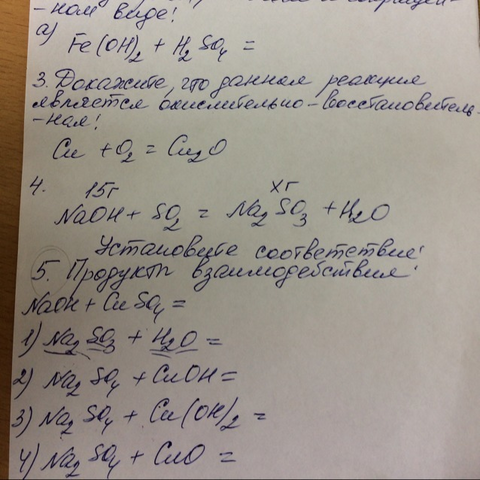 -ном виде!
а) Fe(OH)₂ + H₂SO₄ =
3. Докажите, что данная реакция
является окислительно-восстановитель-
-ная!
Cu + O₂ = Cu₂O
4. 15г хг
NaOH + SO₂ = Na₂SO₃ + H₂O
Установите соответствия!
5. Продукты взаимодействия!
NaOH + CuSO₄ =
1) Na₂SO₃ + H₂O =
2) Na₂SO₄ + CuOH =
3) Na₂SO₄ + Cu(OH)₂ =
4) Na₂SO₄ + CuO =